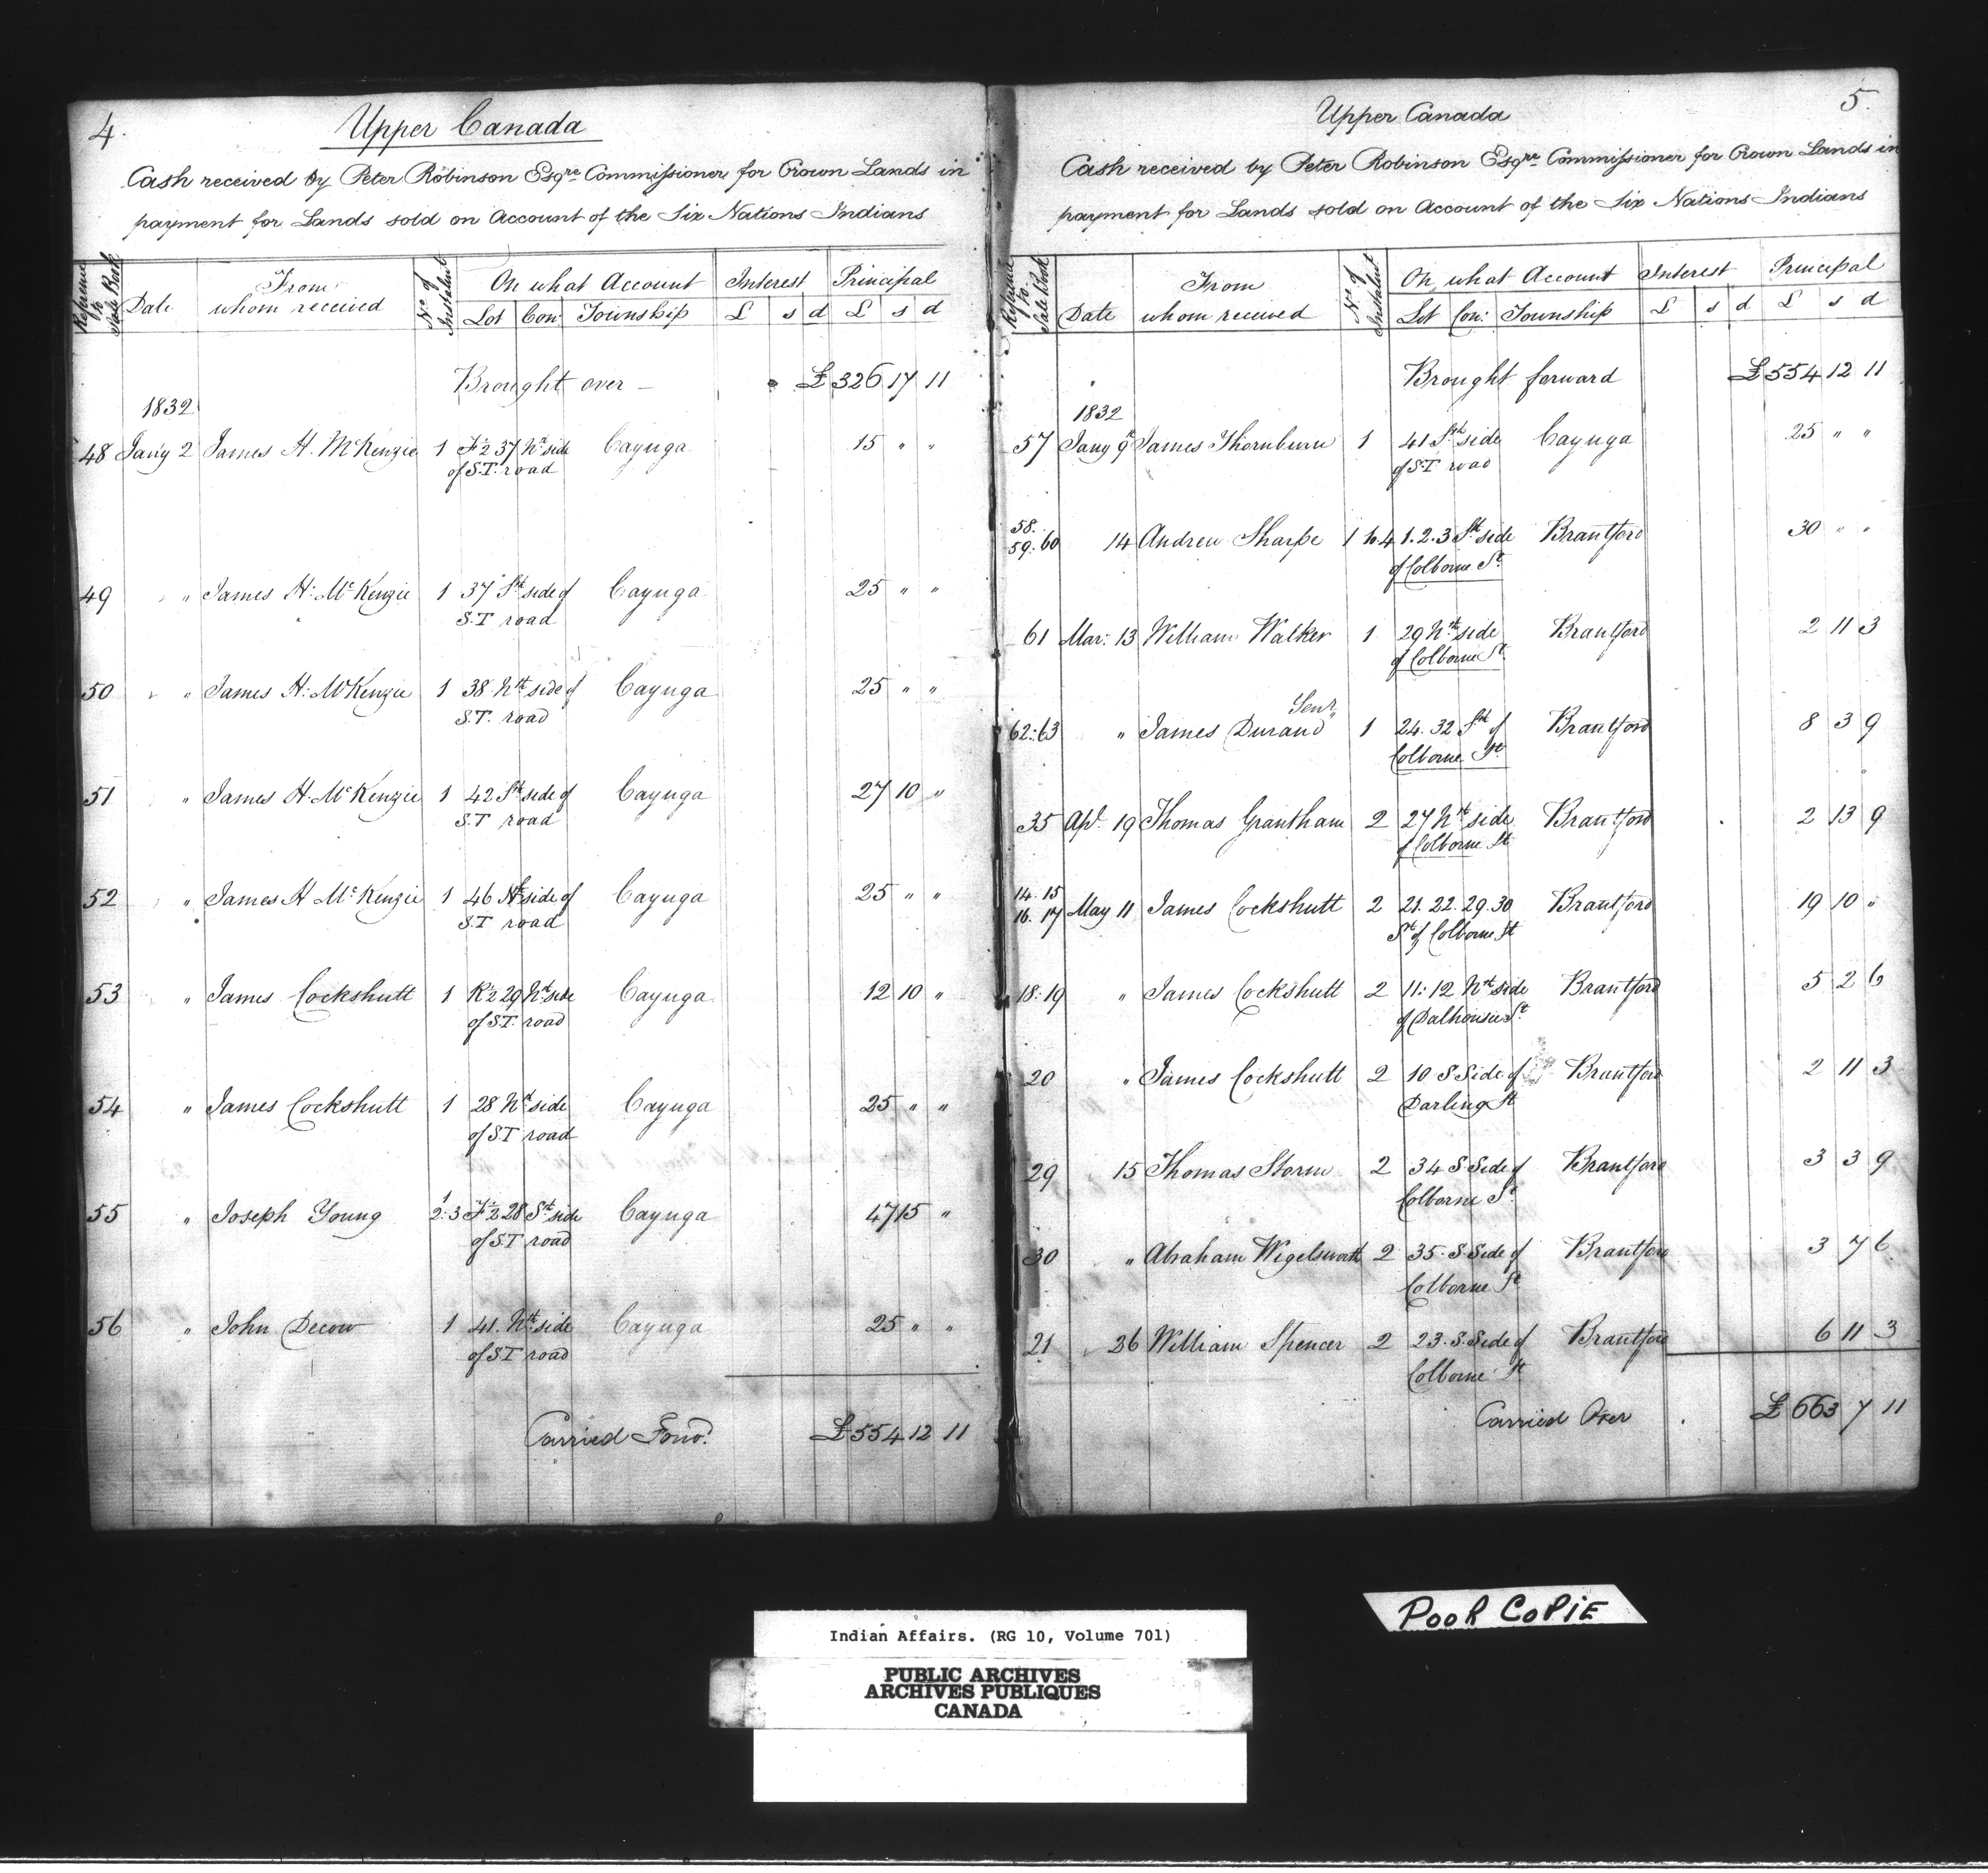 4.
Upper Canada
Cash received by Peter Robinson Esqre Commissioner for Crown Lands in
payment for Lands sold on Account of the Six Nations Indians
Reference to Sale Book | Date | From whom received | No. of Instalmt | On what Account | Interest | Principal
Lot | Con: | Township | £ | s | d | £ | s | d
Brought over — £326 17 11
1832
48 Jany 2 James H. McKenzie 1 F½ 37 Nth side Cayuga 15 " "
of S.T. road
49 " James H: McKenzie 1 37 Sth side of Cayuga 25 " "
S.T road
50 " James H: McKenzie 1 38 Nth side of Cayuga 25 " "
S.T. road
51 " James H. McKenzie 1 42 Sth side of Cayuga 27 10 "
S.T road
52 " James H McKenzie 1 46 Nth side of Cayuga 25 " "
S.T road
53 " James Cockshutt 1 R½ 29 Nth side Cayuga 12 10 "
of S.T. road
54 " James Cockshutt 1 28 Nth side Cayuga 25 " "
of S.T road
55 " Joseph Young 1 2:3 F½ 28 Sth side Cayuga 47 15 "
of S.T road
56 " John Decow 1 41. Nth side Cayuga 25 " "
of S.T road
Carried Forwd. £554 12 11
5.
Upper Canada
Cash received by Peter Robinson Esqre Commissioner for Crown Lands in
payment for Lands sold on Account of the Six Nations Indians
Reference to Sale Book | Date | From whom received | No. of Instalmt | On what Account | Interest | Principal
Lot | Con: | Township | £ | s | d | £ | s | d
Brought forward £554 12 11
1832
57 Jany 9th James Thornburn 1 41 Sth side Cayuga 25 " "
of S.T road
58.
59. 60 14 Andrew Sharpe 1 to 4 1. 2. 3 Sth side Brantford 30 " "
of Colborne St.
61 Mar: 13 William Walker 1 29 Nth side Brantford 2 11 3
of Colborne St.
Senr
62:63 " James Durand 1 24. 32 Sth of Brantford 8 3 9
Colborne St.
35 Apl. 19 Thomas Grantham 2 27 Nth side Brantford 2 13 9
of Colborne St
14. 15
16. 17 May 11 James Cockshutt 2 21. 22. 29. 30 Brantford 19 10 "
Sth of Colborne St
18:19 " James Cockshutt 2 11: 12 Nth side Brantford 5 2 6
of Dalhousie St.
20 " James Cockshutt 2 10 S Side of Brantford 2 11 3
Darling St
29 15 Thomas Storm 2 34 S Side of Brantford 3 3 9
Colborne St.
30 " Abraham Wigelsworth 2 35. S. Side of Brantford 3 7 6
Colborne St.
21 26 William Spencer 2 23. S. Side of Brantford 6 11 3
Colborne St
Carried Over £663 7 11
POOR COPIE
Indian Affairs. (RG 10, Volume 701)
PUBLIC ARCHIVES
ARCHIVES PUBLIQUES
CANADA